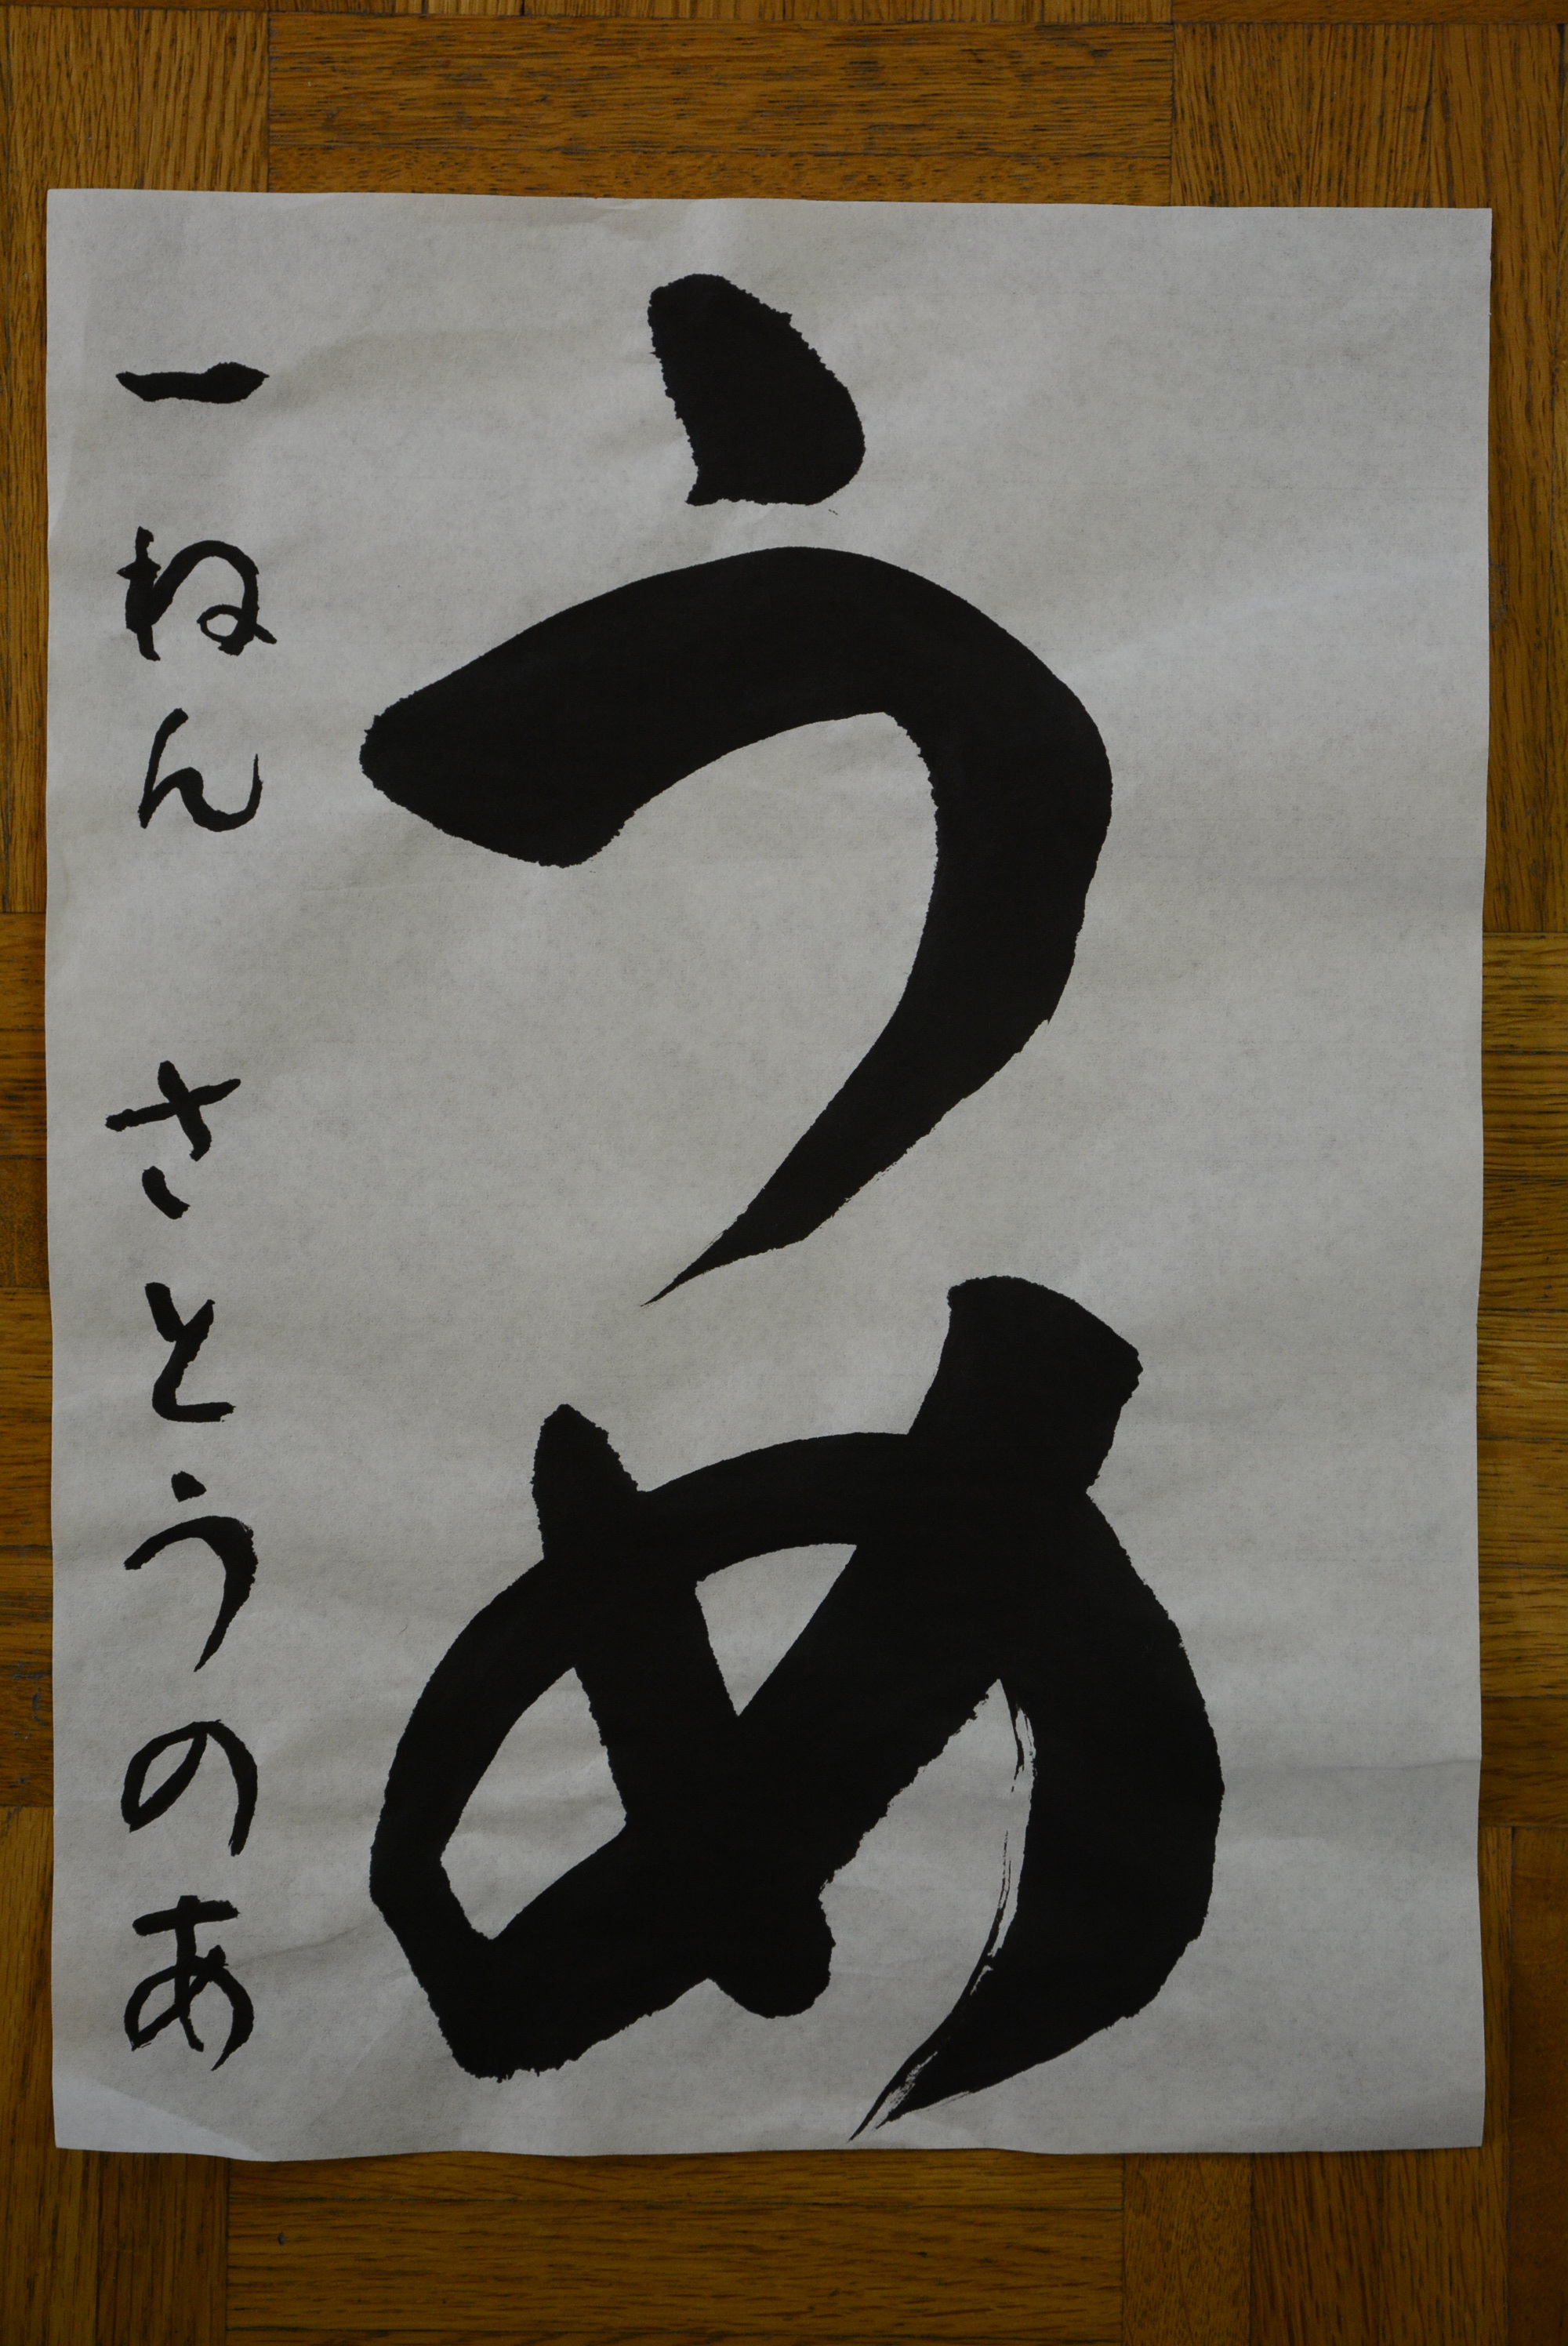 うめ
一ねん さとうのあ